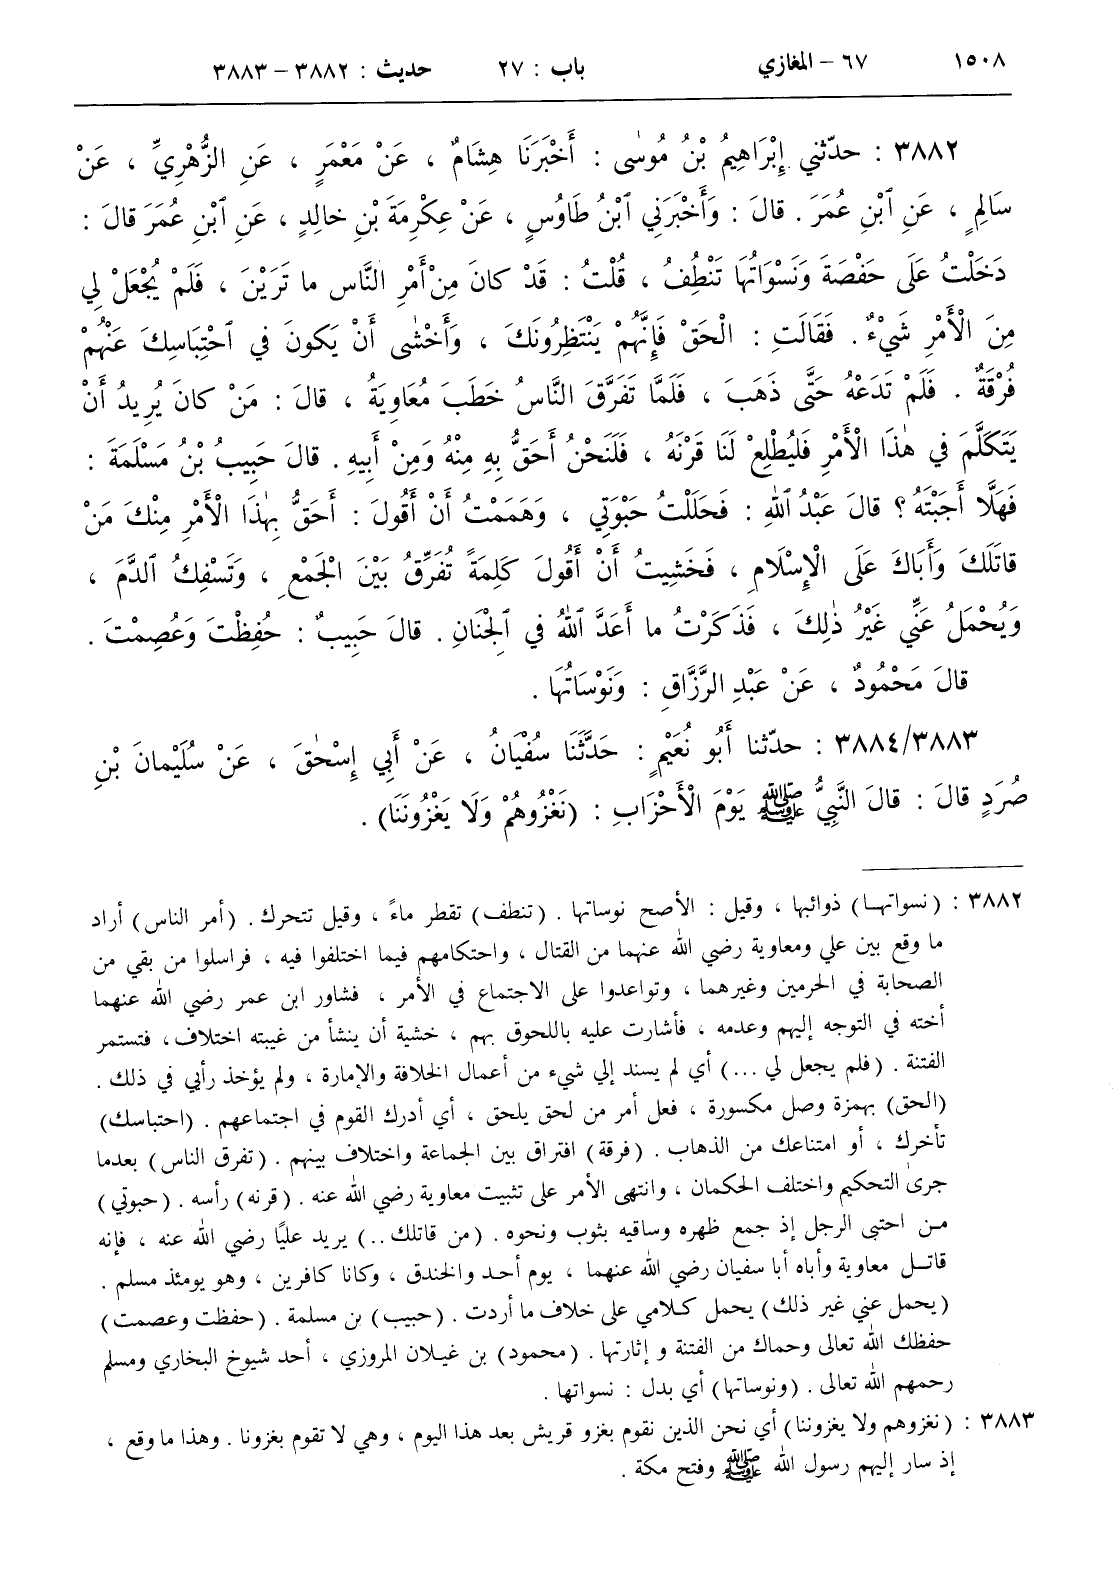 ١٥٠٨ ٦٧ – المغازي باب : ٢٧ حديث : ٣٨٨٢ – ٣٨٨٣
٣٨٨٢ : حدّثني إِبْرَاهِيمُ بْنُ مُوسٰى : أَخْبَرَنَا هِشَامٌ ، عَنْ مَعْمَرٍ ، عَنِ الزُّهْرِيِّ ، عَنْ
سَالِمٍ ، عَنِ ٱبْنِ عُمَرَ . قالَ : وَأَخْبَرَنِي ٱبْنُ طَاوُسٍ ، عَنْ عِكْرِمَةَ بْنِ خالِدٍ ، عَنِ ٱبْنِ عُمَرَ قالَ :
دَخَلْتُ عَلَى حَفْصَةَ وَنَسْوَاتُهَا تَنْطُفُ ، قُلْتُ : قَدْ كانَ مِنْ أَمْرِ النَّاسِ ما تَرَيْنَ ، فَلَمْ يُجْعَلْ لِي
مِنَ الْأَمْرِ شَيْءٌ . فَقَالَتِ : الْحَقْ فَإِنَّهُمْ يَنْتَظِرُونَكَ ، وَأَخْشٰى أَنْ يَكونَ في ٱحْتِبَاسِكَ عَنْهُمْ
فُرْقَةٌ . فَلَمْ تَدَعْهُ حَتَّى ذَهَبَ ، فَلَمَّا تَفَرَّقَ النَّاسُ خَطَبَ مُعَاوِيَةُ ، قالَ : مَنْ كانَ يُرِيدُ أَنْ
يَتَكَلَّمَ في هٰذَا الْأَمْرِ فَلْيُطْلِعْ لَنَا قَرْنَهُ ، فَلَنَحْنُ أَحَقُّ بِهِ مِنْهُ وَمِنْ أَبِيهِ . قالَ حَبِيبُ بْنُ مَسْلَمَةَ :
فَهَلَّا أَجَبْتَهُ ؟ قالَ عَبْدُ ٱللهِ : فَحَلَلْتُ حَبْوَتِي ، وَهَمَمْتُ أَنْ أَقُولَ : أَحَقُّ بِهٰذَا الْأَمْرِ مِنْكَ مَنْ
قاتَلَكَ وَأَبَاكَ عَلَى الْإِسْلَامِ ، فَخَشِيتُ أَنْ أَقُولَ كَلِمَةً تُفَرِّقُ بَيْنَ الْجَمْعِ ، وَتَسْفِكُ ٱلدَّمَ ،
وَيُحْمَلُ عَنِّي غَيْرُ ذٰلِكَ ، فَذَكَرْتُ ما أَعَدَّ ٱللهُ في ٱلْجِنَانِ . قالَ حَبِيبٌ : حُفِظْتَ وَعُصِمْتَ .
قالَ مَحْمُودٌ ، عَنْ عَبْدِ الرَّزَّاقِ : وَنَوْسَاتُهَا .
٣٨٨٤/٣٨٨٣ : حدّثنا أَبُو نُعَيْمٍ : حَدَّثَنَا سُفْيَانُ ، عَنْ أَبِي إِسْحٰقَ ، عَنْ سُلَيْمانَ بْنِ
صُرَدٍ قالَ : قالَ النَّبِيُّ ﷺ يَوْمَ الْأَحْزَابِ : (نَغْزُوهُمْ وَلَا يَغْزُونَنَا) .
٣٨٨٢ : (نسواتهـا) ذوائبها ، وقيل : الأصح نوساتها . (تنطف) تقطر ماءً ، وقيل تتحرك . (أمر الناس) أراد
ما وقع بين علي ومعاوية رضي الله عنهما من القتال ، واحتكامهم فيما اختلفوا فيه ، فراسلوا من بقي من
الصحابة في الحرمين وغيرهما ، وتواعدوا على الاجتماع في الأمر ، فشاور ابن عمر رضي الله عنهما
أخته في التوجه إليهم وعدمه ، فأشارت عليه باللحوق بهم ، خشية أن ينشأ من غيبته اختلاف ، فتستمر
الفتنة . (فلم يجعل لي ...) أي لم يسند إلي شيء من أعمال الخلافة والإمارة ، ولم يؤخذ رأيي في ذلك .
(الحق) بهمزة وصل مكسورة ، فعل أمر من لحق يلحق ، أي أدرك القوم في اجتماعهم . (احتباسك)
تأخرك ، أو امتناعك من الذهاب . (فرقة) افتراق بين الجماعة واختلاف بينهم . (تفرق الناس) بعدما
جرى التحكيم واختلف الحكمان ، وانتهى الأمر على تثبيت معاوية رضي الله عنه . (قرنه) رأسه . (حبوتي)
مـن احتبى الرجل إذ جمع ظهره وساقيه بثوب ونحوه . (من قاتلك ..) يريد عليًا رضي الله عنه ، فإنه
قاتـل معاوية وأباه أبا سفيان رضي الله عنهما ، يوم أحـد والخندق ، وكانا كافرين ، وهو يومئذ مسلم .
(يحمل عني غير ذلك) يحمل كـلامي على خلاف ما أردت . (حبيب) بن مسلمة . (حفظت وعصمت)
حفظك الله تعالى وحماك من الفتنة و إثارتها . (محمود) بن غيـلان المروزي ، أحد شيوخ البخاري ومسلم
رحمهم الله تعالى . (ونوساتها) أي بدل : نسواتها .
٣٨٨٣ : (نغزوهم ولا يغزوننا) أي نحن الذين نقوم بغزو قريش بعد هذا اليوم ، وهي لا تقوم بغزونا . وهذا ما وقع ،
إذ سار إليهم رسول الله ﷺ وفتح مكة .